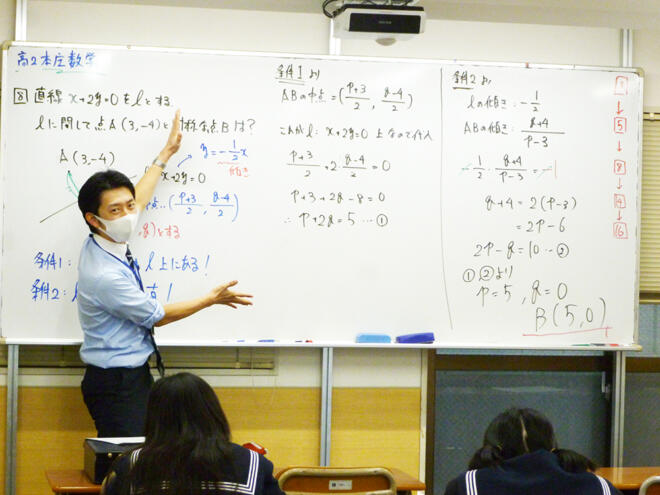 高2本庄数学
[8] 直線 x+2y=0 を l とする.
l に関して点 A(3,-4) と対称な点 B は?
A(3,-4)
y = -1/2 x
傾き
x+2y=0
((p+3)/2, (q-4)/2)
q) とする
条件1: l 上にある!
条件2: l
条件1 より
ABの中点 = ((p+3)/2, (q-4)/2)
これが l: x+2y=0 上なので代入
(p+3)/2 + 2・(q-4)/2 = 0
p+3+2q-8=0
∴ p+2q=5 … ①
条件2 より
lの傾き: -1/2
ABの傾き: (q+4)/(p-3)
-1/2・(q+4)/(p-3) = -1
q+4 = 2(p-3)
= 2p-6
2p-q=10 … ②
①,②より
p=5, q=0
B(5,0)
↓
5
↓
8
↓
4
↓
16